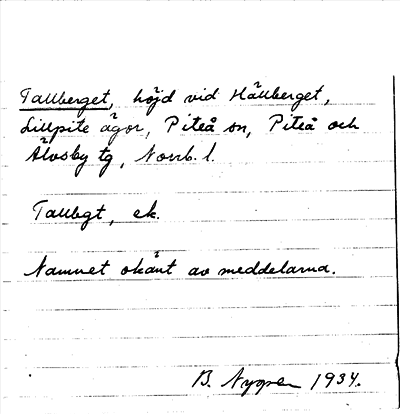 Tallberget, höjd vid Hällberget,
Lillpite ägor, Piteå sn, Piteå och
Älvsby tg, Norrb. l.
Tallbgt, ek.
Namnet okänt av meddelarna.
B. Nyman 1934.